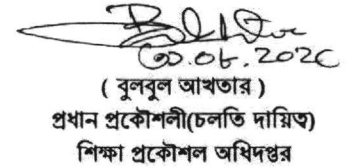 ( বুলবুল আখতার )
প্রধান প্রকৌশলী(চলতি দায়িত্ব)
শিক্ষা প্রকৌশল অধিদপ্তর